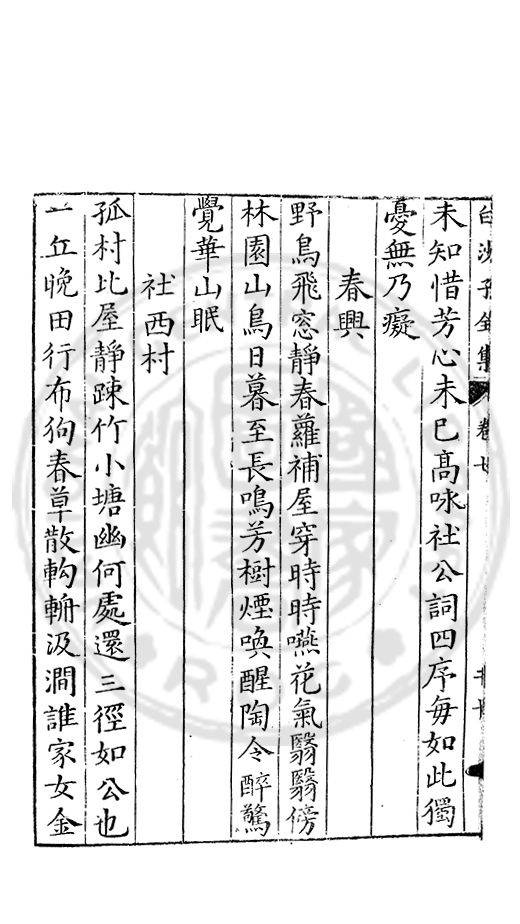 白沙子全集 卷七
未知惜芳心未已高咏社公詞四序每如此獨
憂無乃癡
春興
野鳥飛窓靜春蘿補屋穿時時嚥花氣翳翳傍
林園山鳥日暮至長鳴芳樹煙喚醒陶令醉驚
覺華山眠
社西村
孤村比屋靜疎竹小塘幽何處還三徑如公也
一丘晚田行布狗春草散軥輈汲澗誰家女金